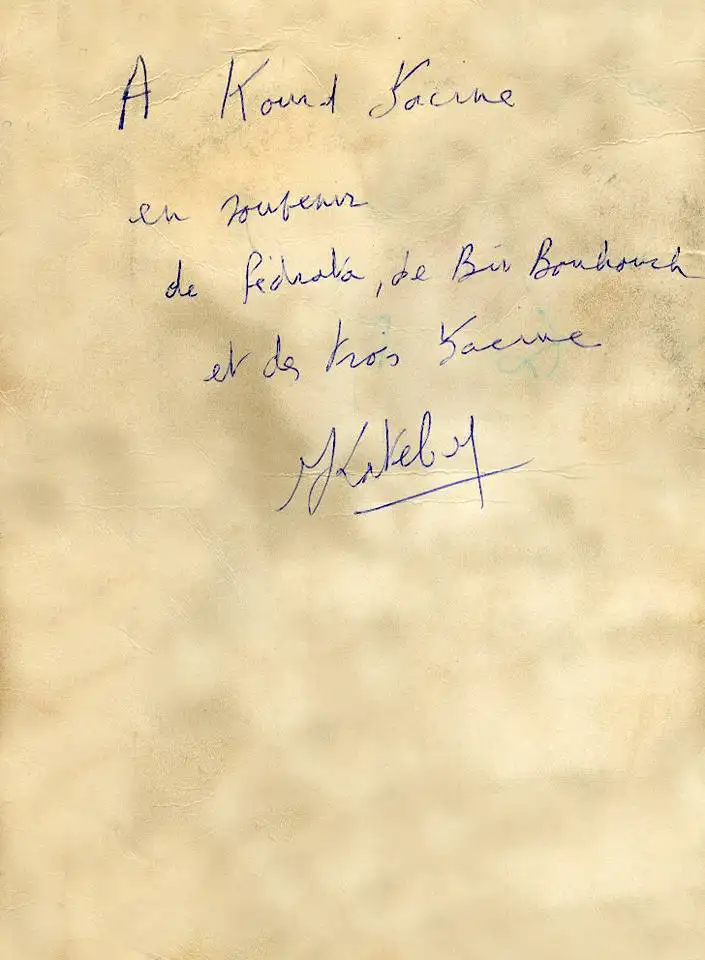 A Kourd Yacine
en souvenir
de Sédrata, de Bir Bouhouch
et des trois Yacine
Kateb y